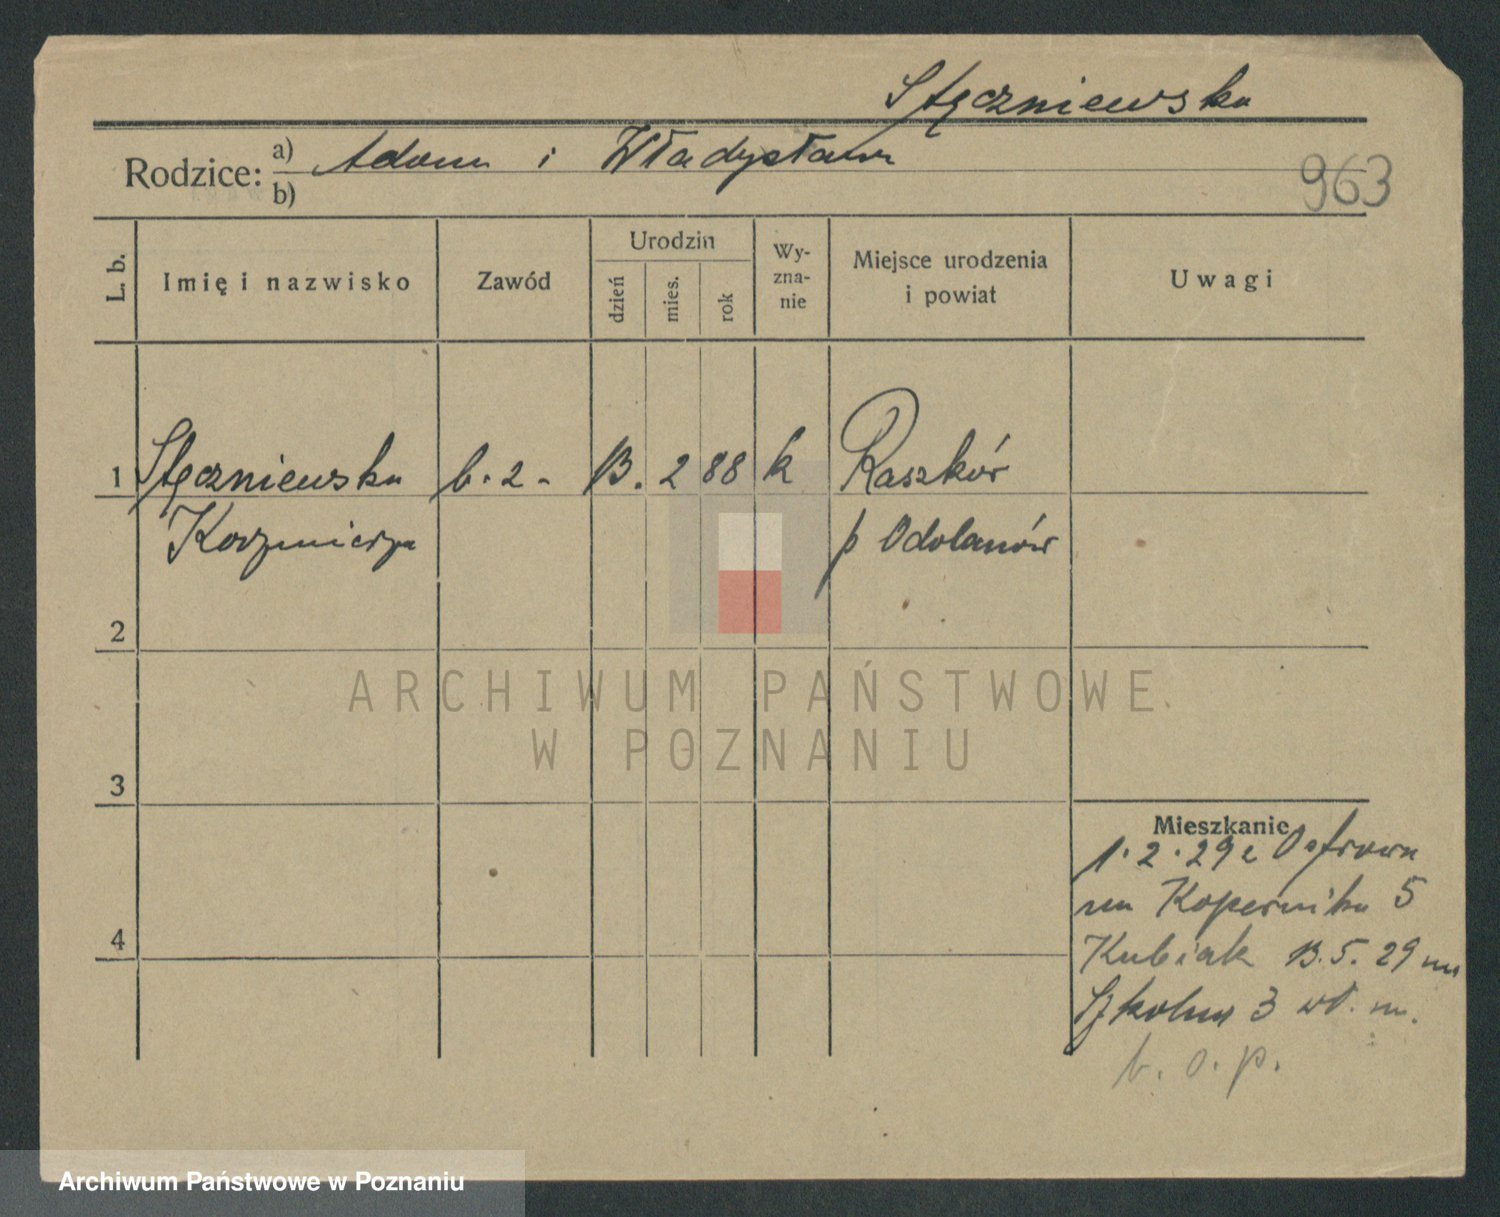 Stęczniewska
Rodzice: a) Adam i Władysława
b)
963
L. b.
Imię i nazwisko
Zawód
Urodzin
dzień
mies.
rok
Wy-
zna-
nie
Miejsce urodzenia
i powiat
Uwagi
1 Stęczniewska b. z - 13. 2 88 k Raszków
Kazimiera p Odolanów
2
3
4
Mieszkanie
1. 2. 29 z Ostrowa
na Kopernika 5
Kubiak 13. 5. 29 na
Szkolna 3 wł. m.
b. o. p.
ARCHIWUM PAŃSTWOWE
W POZNANIU
Archiwum Państwowe w Poznaniu